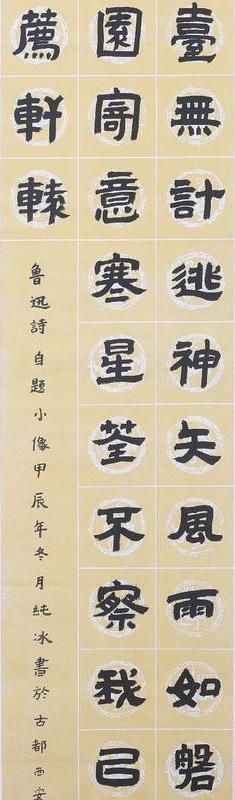 臺無計逃神矢風雨如磐
園寄意寒星荃不察我㠯
薦軒轅
魯迅詩自題小像甲辰年冬月純冰書於古都西安